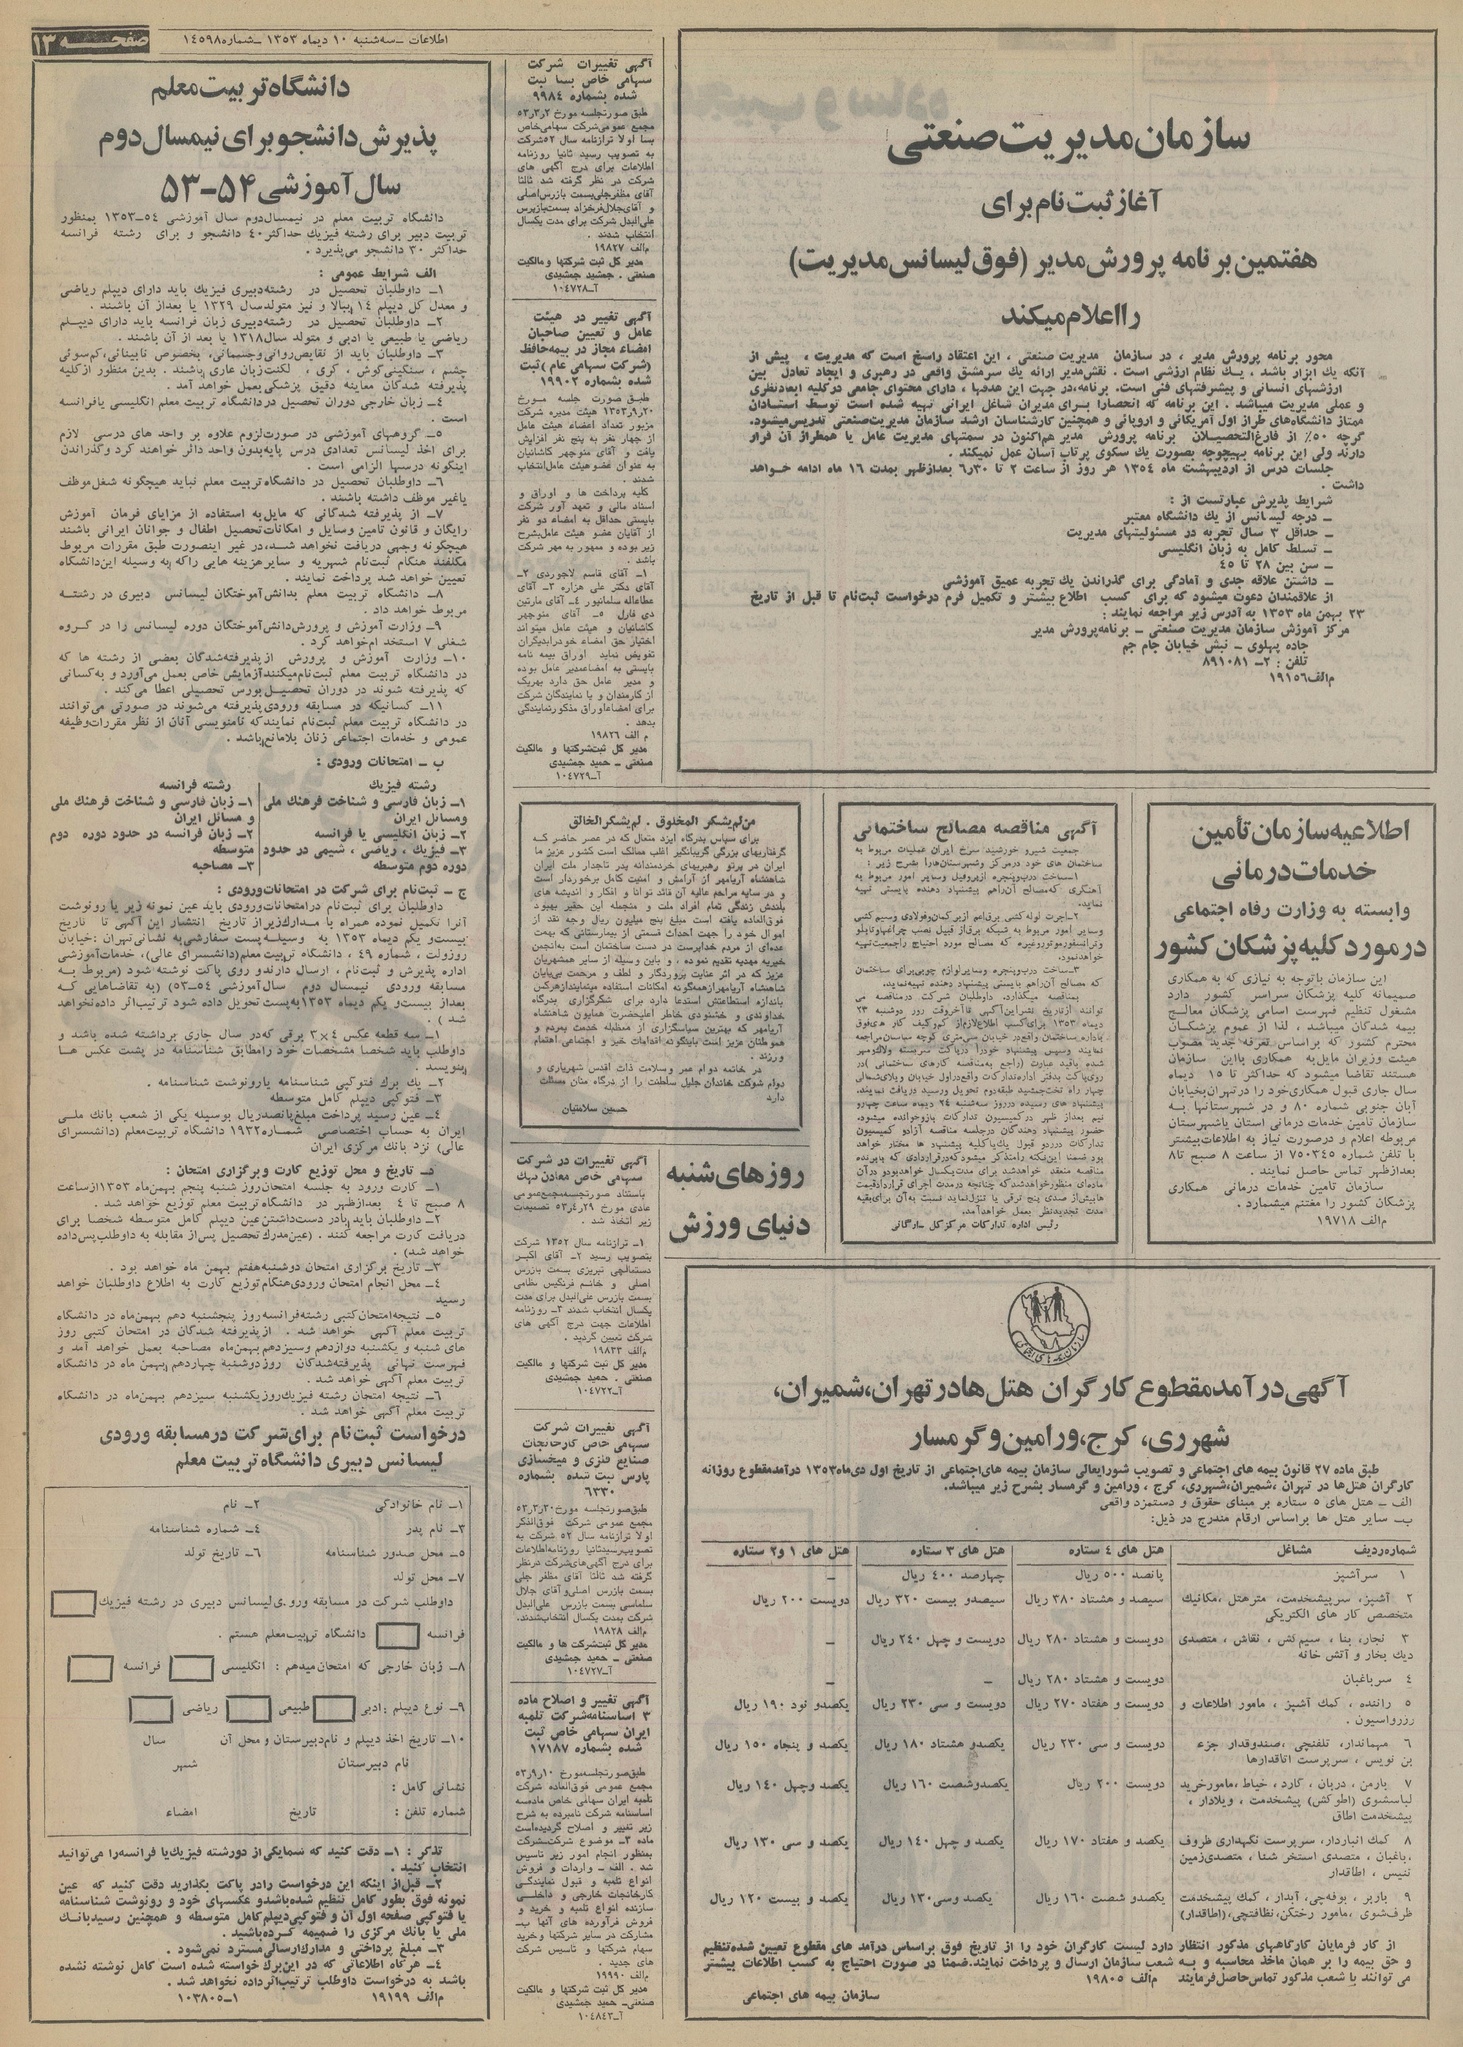 صفحه ۱۳
اطلاعات ـ سه‌شنبه ۱۰ دیماه ۱۳۵۳ ـ شماره ۱۴۵۹۸
سازمان مدیریت صنعتی
آغاز ثبت نام برای
هفتمین برنامه پرورش مدیر (فوق لیسانس مدیریت)
را اعلام میکند
محور برنامه پرورش مدیر ، در سازمان مدیریت صنعتی ، این اعتقاد راسخ است که مدیریت ، پیش از
آنکه یك ابزار باشد . یك نظام ارزشی است . نقش مدیر ارائه یك سرمشق واقعی در رهبری و ایجاد تعادل بین
ارزشهای انسانی و پیشرفتهای فنی است. برنامه،در جهت این هدفها ، دارای محتوای جامعی درکلیه ابعادنظری
و عملی مدیریت میباشد . این برنامه که انحصارا برای مدیران شاغل ایرانی تهیه شده است توسط استادان
ممتاز دانشگاه‌های طراز اول آمریکائی و اروپائی و همچنین کارشناسان ارشد سازمان مدیریت‌صنعتی تدریس‌میشود.
گرچه ۵۰٪ از فارغ‌التحصیلان برنامه پرورش مدیر هم‌اکنون در سمتهای مدیریت عامل یا همطراز آن قرار
دارند ولی این برنامه بهیچوجه بصورت یك سکوی پرتاب آسان عمل نمیکند .
جلسات درس از اردیبهشت ماه ۱۳۵۴ هر روز از ساعت ۲ تا ۶٫۳۰ بعدازظهر بمدت ۱۶ ماه ادامه خواهد
داشت .
شرایط پذیرش عبارتست از :
ـ درجه لیسانس از یك دانشگاه معتبر
ـ حداقل ۳ سال تجربه در مسئولیتهای مدیریت
ـ تسلط کامل به زبان انگلیسی
ـ سن بین ۲۸ تا ۴۵
ـ داشتن علاقه جدی و آمادگی برای گذراندن یك تجربه عمیق آموزشی
از علاقمندان دعوت میشود که برای کسب اطلاع بیشتر و تکمیل فرم درخواست ثبت‌نام تا قبل از تاریخ
۲۳ بهمن ماه ۱۳۵۳ به آدرس زیر مراجعه نمایند :
مرکز آموزش سازمان مدیریت صنعتی ـ برنامه‌پرورش مدیر
جاده پهلوی ـ نبش خیابان جام جم
تلفن : ۲ـ ۸۹۱۰۸۱
م‌الف۱۹۱۵۶
آگهی تغییرات شرکت
سهامی خاص بسا ثبت
شده بشماره ۹۹۸۴
طبق صورتجلسه مورخ ۵۳٫۳٫۲
مجمع عمومی‌شرکت سهامی‌خاص
بسا اولا ترازنامه سال ۵۲شرکت
به تصویب رسید ثانیا روزنامه
اطلاعات برای درج آگهی های
شرکت در نظر گرفته شد ثالثا
آقای مظفرجلی‌بسمت بازرس‌اصلی
و آقای‌جلال‌فرخزاد بسمت‌بازرس
علی‌البدل شرکت برای مدت یکسال
انتخاب شدند .
م‌الف ۱۹۸۲۷
مدیر کل ثبت شرکتها و مالکیت
صنعتی . جمشید جمشیدی
آـ۱۰۴۷۲۸
آگهی تغییر در هیئت
عامل و تعیین صاحبان
امضاء مجاز در بیمه‌حافظ
(شرکت سهامی عام )ثبت
شده بشماره ۱۹۹۰۲
طبق صورت جلسه مورخ
۱۳۵۳٫۹٫۲۰ هیئت مدیره شرکت
مزبور تعداد اعضاء هیئت عامل
از چهار نفر به پنج نفر افزایش
یافت و آقای منوچهر کاشانیان
به عنوان عضو هیئت عامل‌انتخاب
شدند .
کلیه پرداخت ها و اوراق و
اسناد مالی و تعهد آور شرکت
بایستی حداقل به امضاء دو نفر
از آقایان عضو هیئت عامل‌بشرح
زیر بوده و ممهور به مهر شرکت
باشد .
۱ـ آقای قاسم لاجوردی ۲ـ
آقای دکتر علی هزاره ۳ـ آقای
عطاءاله سلمانپور ۴ـ آقای مارتین
دی فارل ۵ـ آقای منوچهر
کاشانیان و هیئت عامل میتواند
اختیار حق امضاء خودرابدیگران
تفویض نماید اوراق بیمه نامه
بایستی به امضاءمدیر عامل بوده
و مدیر عامل حق دارد بهریك
از کارمندان و یا نمایندگان شرکت
برای امضاءاوراق مذکورنمایندگی
بدهد .
م الف ۱۹۸۲۶
مدیر کل ثبت‌شرکتها و مالکیت
صنعتی ـ حمید جمشیدی
آـ۱۰۴۷۲۹
دانشگاه تربیت معلم
پذیرش دانشجو برای نیمسال دوم
سال آموزشی ۵۴ـ۵۳
دانشگاه تربیت معلم در نیمسال‌دوم سال آموزشی ۵۴ـ۱۳۵۳ بمنظور
تربیت دبیر برای رشته فیزیك حداکثر۴۰ دانشجو و برای رشته فرانسه
حداکثر ۳۰ دانشجو می‌پذیرد .
الف شرایط عمومی :
۱ـ داوطلبان تحصیل در رشته‌دبیری فیزیك باید دارای دیپلم ریاضی
و معدل کل دیپلم ۱۴ ببالا و نیز متولدسال ۱۳۲۹ یا بعداز آن باشند .
۲ـ داوطلبان تحصیل در رشته‌دبیری زبان فرانسه باید دارای دیپلم
ریاضی یا طبیعی یا ادبی و متولد سال۱۳۱۸ یا بعد از آن باشند .
۳ـ داوطلبان باید از نقایص‌روانی‌وجسمانی، بخصوص نابینائی،کم‌سوئی
چشم ، سنگینی‌گوش ، کری ، لکنت‌زبان عاری باشند . بدین منظور ازکلیه
پذیرفته شدگان معاینه دقیق پزشکی‌بعمل خواهد آمد .
۴ـ زبان خارجی دوران تحصیل در دانشگاه تربیت معلم انگلیسی یافرانسه
است .
۵ـ گروههای آموزشی در صورت‌لزوم علاوه بر واحد های درسی لازم
برای اخذ لیسانس تعدادی درس پایه‌بدون واحد دائر خواهند کرد وگذراندن
اینگونه درسها الزامی است .
۶ـ داوطلبان تحصیل در دانشگاه تربیت معلم نباید هیچگونه شغل‌موظف
یاغیر موظف داشته باشند .
۷ـ از پذیرفته شدگانی که مایل‌به استفاده از مزایای فرمان آموزش
رایگان و قانون تامین وسایل و امکانات‌تحصیل اطفال و جوانان ایرانی باشند
هیچگونه وجهی دریافت نخواهد شد،در غیر اینصورت طبق مقررات مربوط
مکلفند هنگام ثبت‌نام شهریه و سایرهزینه هایی راکه به وسیله این‌دانشگاه
تعیین خواهد شد پرداخت نمایند .
۸ـ دانشگاه تربیت معلم بدانش‌آموختگان لیسانس دبیری در رشته
مربوط خواهد داد .
۹ـ وزارت آموزش و پرورش‌دانش‌آموختگان دوره لیسانس را در گروه
شغلی ۷ استخدام‌خواهد کرد .
۱۰ـ وزارت آموزش و پرورش از پذیرفته‌شدگان بعضی از رشته ها که
در دانشگاه تربیت معلم ثبت‌نام‌میکنندآزمایش خاص بعمل می‌آورد و به‌کسانی
که پذیرفته شوند در دوران تحصیل‌بورس تحصیلی اعطا می‌کند .
۱۱ـ کسانیکه در مسابقه ورودی‌پذیرفته می‌شوند در صورتی می‌توانند
در دانشگاه تربیت معلم ثبت‌نام نمایند که نامنویسی آنان از نظر مقررات‌وظیفه
عمومی و خدمات اجتماعی زنان بلامانع‌باشد .
ب ـ امتحانات ورودی :
رشته فیزیك
۱ـ زبان فارسی و شناخت فرهنك ملی
ومسائل ایران
۲ـ زبان انگلیسی یا فرانسه
۳ـ فیزیك ، ریاضی ، شیمی در حدود
دوره دوم متوسطه
رشته فرانسه
۱ـ زبان فارسی و شناخت فرهنك ملی
و مسائل ایران
۲ـ زبان فرانسه در حدود دوره دوم
متوسطه
۳ـ مصاحبه
ج ـ ثبت‌نام برای شرکت در امتحانات‌ورودی :
داوطلبان برای ثبت‌نام درامتحانات‌ورودی باید عین نمونه زیر یا رونوشت
آنرا تکمیل نموده همراه با مدارك‌زیراز تاریخ انتشار این آگهی تا تاریخ
بیست‌و یکم دیماه ۱۳۵۳ به وسیله پست سفارشی‌به نشانی‌تهران :خیابان
روزولت ، شماره ۴۹ ، دانشگاه تربیت معلم(دانشسرای عالی)، خدمات‌آموزشی
اداره پذیرش و ثبت‌نام ، ارسال دارندو روی پاکت نوشته شود (مربوط به
مسابقه ورودی نیمسال دوم سال‌آموزشی ۵۴ـ۵۳) (به تقاضاهایی که
بعداز بیست‌و یکم دیماه ۱۳۵۳به‌پست تحویل داده شود ترتیب‌اثر داده‌نخواهد
شد ) .
۱ـ سه قطعه عکس ۴×۳ برقی که‌در سال جاری برداشته شده باشد و
داوطلب باید شخصا مشخصات خود رامطابق شناسنامه در پشت عکس ها
بنویسد .
۲ـ یك برك فتوکپی شناسنامه یارونوشت شناسنامه .
۳ـ فتوکپی دیپلم کامل متوسطه
۴ـ عین رسید پرداخت مبلغ‌پانصدریال بوسیله یکی از شعب بانك ملی
ایران به حساب اختصاصی شماره۱۹۳۲ دانشگاه تربیت‌معلم (دانشسرای
عالی) نزد بانك مرکزی ایران
د ـ تاریخ و محل توزیع کارت وبرگزاری امتحان :
۱ـ کارت ورود به جلسه امتحان‌روز شنبه پنجم بهمن‌ماه ۱۳۵۳ازساعت
۸ صبح تا ۴ بعدازظهر در دانشگاه تربیت معلم توزیع خواهد شد .
۲ـ داوطلبان باید بادر دست‌داشتن‌عین دیپلم کامل متوسطه شخصا برای
دریافت کارت مراجعه کنند . (عین‌مدرك تحصیل پس‌از مقابله به داوطلب پس‌داده
خواهد شد) .
۳ـ تاریخ برگزاری امتحان دوشنبه‌هفتم بهمن ماه خواهد بود .
۴ـ محل انجام امتحان ورودی‌هنگام توزیع کارت به اطلاع داوطلبان خواهد
رسید
۵ـ نتیجه‌امتحان‌کتبی رشته‌فرانسه‌روز پنجشنبه دهم بهمن‌ماه در دانشگاه
تربیت معلم آگهی خواهد شد . از پذیرفته شدگان در امتحان کتبی روز
های شنبه و یکشنبه دوازدهم وسیزدهم‌بهمن‌ماه مصاحبه بعمل خواهد آمد و
فهرست نهائی پذیرفته‌شدگان روزدوشنبه چهاردهم بهمن ماه در دانشگاه
تربیت معلم آگهی خواهد شد .
۶ـ نتیجه امتحان رشته فیزیك‌روزیکشنبه سیزدهم بهمن‌ماه در دانشگاه
تربیت معلم آگهی خواهد شد .
درخواست ثبت‌نام برای شرکت در مسابقه ورودی
لیسانس دبیری دانشگاه تربیت معلم
۱ـ نام خانوادگی ۲ـ نام
۳ـ نام پدر ۴ـ شماره شناسنامه
۵ـ محل صدور شناسنامه ۶ـ تاریخ تولد
۷ـ محل تولد
داوطلب شرکت در مسابقه ورودی لیسانس دبیری در رشته فیزیك
فرانسه دانشگاه تربیت‌معلم هستم .
۸ـ زبان خارجی که امتحان‌میدهم : انگلیسی فرانسه
۹ـ نوع دیپلم :ادبی طبیعی ریاضی
۱۰ـ تاریخ اخذ دیپلم و نام‌دبیرستان و محل آن سال
نام دبیرستان شهر
نشانی کامل :
شماره تلفن : تاریخ امضاء
تذکر : ۱ـ دقت کنید که شمایکی از دورشته فیزیك یا فرانسه‌را می‌توانید
انتخاب کنید .
۲ـ قبل‌از اینکه این درخواست رادر پاکت بگذارید دقت کنید که عین
نمونه فوق بطور کامل تنظیم شده‌باشدو عکسهای خود و رونوشت شناسنامه
یا فتوکپی صفحه اول آن و فتوکپی‌دیپلم‌کامل متوسطه و همچنین رسیدبانك
ملی یا بانك مرکزی را ضمیمه کرده‌باشید .
۳ـ مبلغ پرداختی و مدارك‌ارسالی‌مسترد نمی‌شود .
۴ـ هرگاه اطلاعاتی که در این‌برك خواسته شده است کامل نوشته نشده
باشد به درخواست داوطلب ترتیب‌اثرداده نخواهد شد .
م‌الف ۱۹۱۹۹ ۱ـ۱۰۳۸۰۵
اطلاعیه سازمان تأمین
خدمات درمانی
وابسته به وزارت رفاه اجتماعی
در مورد کلیه پزشکان کشور
این سازمان باتوجه به نیازی که به همکاری
صمیمانه کلیه پزشکان سراسر کشور دارد
مشغول تنظیم فهرست اسامی پزشکان معالج
بیمه شدگان میباشد ، لذا از عموم پزشکان
محترم کشور که براساس تعرفه جدید مصوب
هیئت وزیران مایل‌به همکاری بااین سازمان
هستند تقاضا میشود که حداکثر تا ۱۵ دیماه
سال جاری قبول همکاری‌خود را درتهران‌بخیابان
آبان جنوبی شماره ۸۰ و در شهرستانها به
سازمان تامین خدمات درمانی استان یاشهرستان
مربوطه اعلام و درصورت نیاز به اطلاعات‌بیشتر
با تلفن شماره ۷۵۰۳۴۵ از ساعت ۸ صبح تا۸
بعدازظهر تماس حاصل نمایند .
سازمان تامین خدمات درمانی همکاری
پزشکان کشور را مغتنم میشمارد .
م‌الف ۱۹۷۱۸
آگهی مناقصه مصالح ساختمانی
جمعیت شیرو خورشید سرخ ایران عملیات مربوط به
ساختمان های خود درمرکز وشهرستان‌هارا بشرح زیر :
۱ـساخت درب‌وپنجره ازپروفیل وسایر امور مربوط به
آهنگری که‌مصالح آن‌راهم پیشنهاد دهنده بایستی تهیه
نماید.
هیئت‌مدیره
۳ـساخت درب‌وپنجره وسایرلوازم چوبی‌برای ساختمان
که مصالح آن‌راهم بایستی پیشنهاد دهنده تهیه‌نماید.
بمناقصه میگذارد. داوطلبان شرکت درمناقصه می
رئیس اداره تدارکات مرکزکل ـ ارگانی
من‌لم‌یشکر المخلوق . لم‌یشکر‌الخالق
برای سپاس بدرگاه ایزد متعال که در عصر حاضر که
گرفتاریهای بزرگی گریبانگیر اغلب ممالك است کشور عزیز ما
ایران در پرتو رهبریهای خردمندانه پدر تاجدار ملت ایران
شاهنشاه آریامهر از آرامش و امنیت کامل برخوردار است
و در سایه مراحم عالیه آن قائد توانا و افکار و اندیشه های
بلندش زندگی تمام افراد ملت و منجمله این حقیر بهبود
فوق‌العاده یافته است مبلغ پنج میلیون ریال وجه نقد از
اموال خود را جهت احداث قسمتی از بیمارستانی که بهمت
عده‌ای از مردم خداپرست در دست ساختمان است به‌انجمن
خیریه مهدیه تقدیم نموده ، و باین وسیله از سایر همشهریان
عزیز که در اثر عنایت پروردگار و لطف و مرحمت بی‌پایان
شاهنشاه آریامهرازهمه‌گونه امکانات استفاده مینمایندازهرکس
باندازه استطاعتش استدعا دارد برای شکرگزاری بدرگاه
خداوندی و خشنودی خاطر اعلیحضرت همایون شاهنشاه
آریامهر که بهترین سپاسگزاری از معظم‌له خدمت بمردم و
هموطنان عزیز است باینگونه اقدامات خیر و اجتماعی اهتمام
ورزند .
در خاتمه دوام عمر وسلامت ذات اقدس شهریاری و
دوام شوکت خاندان جلیل سلطنت را از درگاه منان مسئلت
دارد
حسین سلامتیان
روزهای شنبه
دنیای ورزش
آگهی تغییرات در شرکت
سهامی خاص معادن نهك
باستناد صورتجلسه‌مجمع‌عمومی
عادی مورخ ۵۳٫۴٫۲۹ تصمیمات
زیر اتخاذ شد .
۱ـ ترازنامه سال ۱۳۵۲ شرکت
بتصویب رسید ۲ـ آقای اکبر
دستمالچی تبریزی بسمت بازرس
اصلی و خانم فرنگیس نظامی
بسمت بازرس علی‌البدل برای مدت
یکسال انتخاب شدند ۳ـ روزنامه
اطلاعات جهت درج آگهی های
شرکت تعیین گردید .
م‌الف ۱۹۸۳۳
مدیر کل ثبت شرکتها و مالکیت
صنعتی . حمید جمشیدی
آـ۱۰۴۷۲۲
آگهی تغییرات شرکت
سهامی خاص کارخانجات
صنایع فلزی و میخسازی
پارس ثبت شده بشماره
۶۳۳۰
طبق‌صورتجلسه مورخ ۵۳٫۲٫۳۰
مجمع عمومی شرکت فوق‌الذکر
اولا ترازنامه سال ۵۲ شرکت به
تصویب‌رسیدثانیا روزنامه‌اطلاعات
برای درج آگهی‌های‌شرکت درنظر
گرفته شد ثالثا آقای مظفر جلی
بسمت بازرس اصلی‌و آقای جلال
سلماسی بسمت بازرس علی‌البدل
شرکت بمدت یکسال انتخاب‌شدند.
م‌الف ۱۹۸۲۸
مدیر کل ثبت‌شرکت ها و مالکیت
صنعتی ـ حمید جمشیدی
آـ۱۰۴۷۲۷
آگهی تغییر و اصلاح ماده
۳ اساسنامه‌شرکت تلمبه
ایران سهامی خاص ثبت
شده بشماره ۱۷۱۸۷
طبق‌صورتجلسه‌مورخ ۵۳٫۹٫۱۰
مجمع عمومی فوق‌العاده شرکت
تلمبه ایران سهامی خاص ماده‌سه
اساسنامه شرکت نامبرده به شرح
زیر تغییر و اصلاح گردیده‌است
ماده ۳ـ موضوع شرکت‌شرکت
بمنظور انجام امور زیر تاسیس
شد . الف ـ واردات و فروش
انواع تلمبه و قبول نمایندگی
کارخانجات خارجی و داخلی
سازنده انواع تلمبه و خرید و
فروش فرآورده های آنها ب‌ـ
مشارکت در سایر شرکتها و خرید
سهام شرکتها و تاسیس شرکت
های جدید .
م‌الف ۱۹۹۹۰
مدیر کل ثبت شرکتها و مالکیت
صنعتی‌ـ حمید جمشیدی
آـ۱۰۴۸۴۳
آگهی درآمد مقطوع کارگران هتل ها در تهران، شمیران،
شهرری، کرج، ورامین و گرمسار
طبق ماده ۲۷ قانون بیمه های اجتماعی و تصویب شورایعالی سازمان بیمه های‌اجتماعی از تاریخ اول دی‌ماه۱۳۵۳ درآمدمقطوع روزانه
کارگران هتل‌ها در تهران ،شمیران،شهرری، کرج ، ورامین و گرمسار بشرح زیر میباشد.
الف ـ هتل های ۵ ستاره بر مبنای حقوق و دستمزد واقعی
ب‌ـ سایر هتل ها براساس ارقام مندرج در ذیل:
شماره‌ردیف مشاغل هتل های ۴ ستاره هتل های ۳ ستاره هتل های ۱ و۲ ستاره
۱ سرآشپز پانصد ۵۰۰ ریال چهارصد ۴۰۰ ریال ـ
۲ آشپز، سرپیشخدمت، مترهتل ،مکانیك سیصد‌و هشتاد ۳۸۰ ریال سیصدو بیست ۳۲۰ ریال دویست ۲۰۰ ریال
متخصص کار های الکتریکی
۳ نجار، بنا ، سیم‌کش ، نقاش ، متصدی دویست و هشتاد ۲۸۰ ریال دویست و چهل ۲۴۰ ریال ـ
دیك بخار و آتش خانه
۴ سرباغبان دویست و هشتاد ۲۸۰ ریال ـ ـ
۵ راننده ، کمك آشپز ، مامور اطلاعات و دویست و هفتاد ۲۷۰ ریال دویست و سی ۲۳۰ ریال یکصدو نود ۱۹۰ ریال
رزرواسیون .
۶ مهماندار، تلفنچی ،صندوقدار جزء دویست و سی ۲۳۰ ریال یکصدو هشتاد ۱۸۰ ریال یکصد و پنجاه ۱۵۰ ریال
بن نویس ، سرپرست اتاقدارها
۷ بارمن ، دربان ، گارد ، خیاط ،مامورخرید دویست ۲۰۰ ریال یکصدوشصت ۱۶۰ ریال یکصد وچهل ۱۴۰ ریال
لباسشوی (اطوکش) پیشخدمت ، ویلادار ،
پیشخدمت اطاق
۸ کمك انباردار، سرپرست نگهداری ظروف یکصد و هفتاد ۱۷۰ ریال یکصد و چهل ۱۴۰ ریال یکصد و سی ۱۳۰ ریال
،باغبان ، متصدی استخر شنا ، متصدی‌زمین
تنیس ، اطاقدار
۹ باربر ، بوفه‌چی، آبدار ، کمك پیشخدمت یکصدو شصت ۱۶۰ ریال یکصد وسی ۱۳۰ ریال یکصد و بیست ۱۲۰ ریال
ظرف‌شوی ،مامور رختکن، نظافتچی، (اطاقدار)
از کار فرمایان کارگاههای مذکور انتظار دارد لیست کارگران خود را از تاریخ فوق براساس درآمد های مقطوع تعیین شده‌تنظیم
و حق بیمه را بر همان ماخذ محاسبه و به شعب سازمان ارسال و پرداخت نمایند.ضمنا در صورت احتیاج به کسب اطلاعات بیشتر
می توانند با شعب مذکور تماس‌حاصل‌فرمایند م‌الف ۱۹۸۰۵
سازمان بیمه های اجتماعی